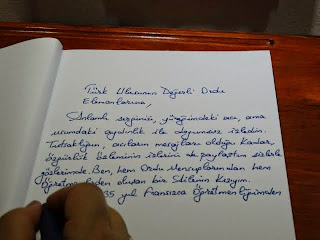 Türk Ulusunun Değerli Ordu
Elemanlarına,
Anlamlı sezginizi, yüreğimdeki acı, ama
ucumdaki aydınlık ile doyumsuz izledim.
Tutsaklığın, acıların mesajları olduğu kadar,
özgürlük özleminin izlerini de paylaştım sizlerle
gözlerimde. Ben, hem Ordu Mensuplarından hem
Öğretmenlerden oluşan bir ailenin kızıyım.
35 yıl Fransızca Öğretmenliğimden